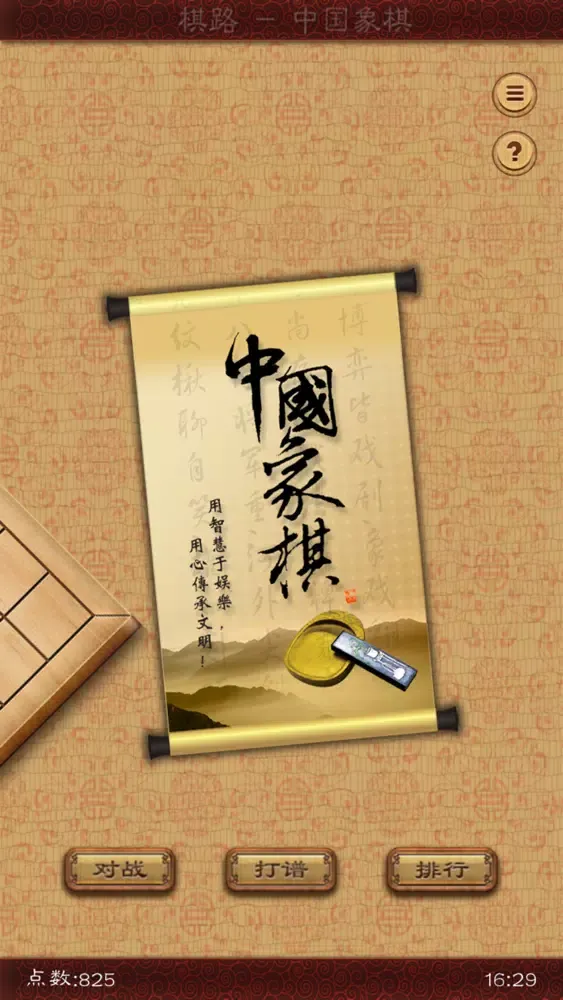 棋路 － 中国象棋
?
中國象棋
用智慧于娱樂，
用心傳承文明！
对战
打谱
排行
点数:825
16:29